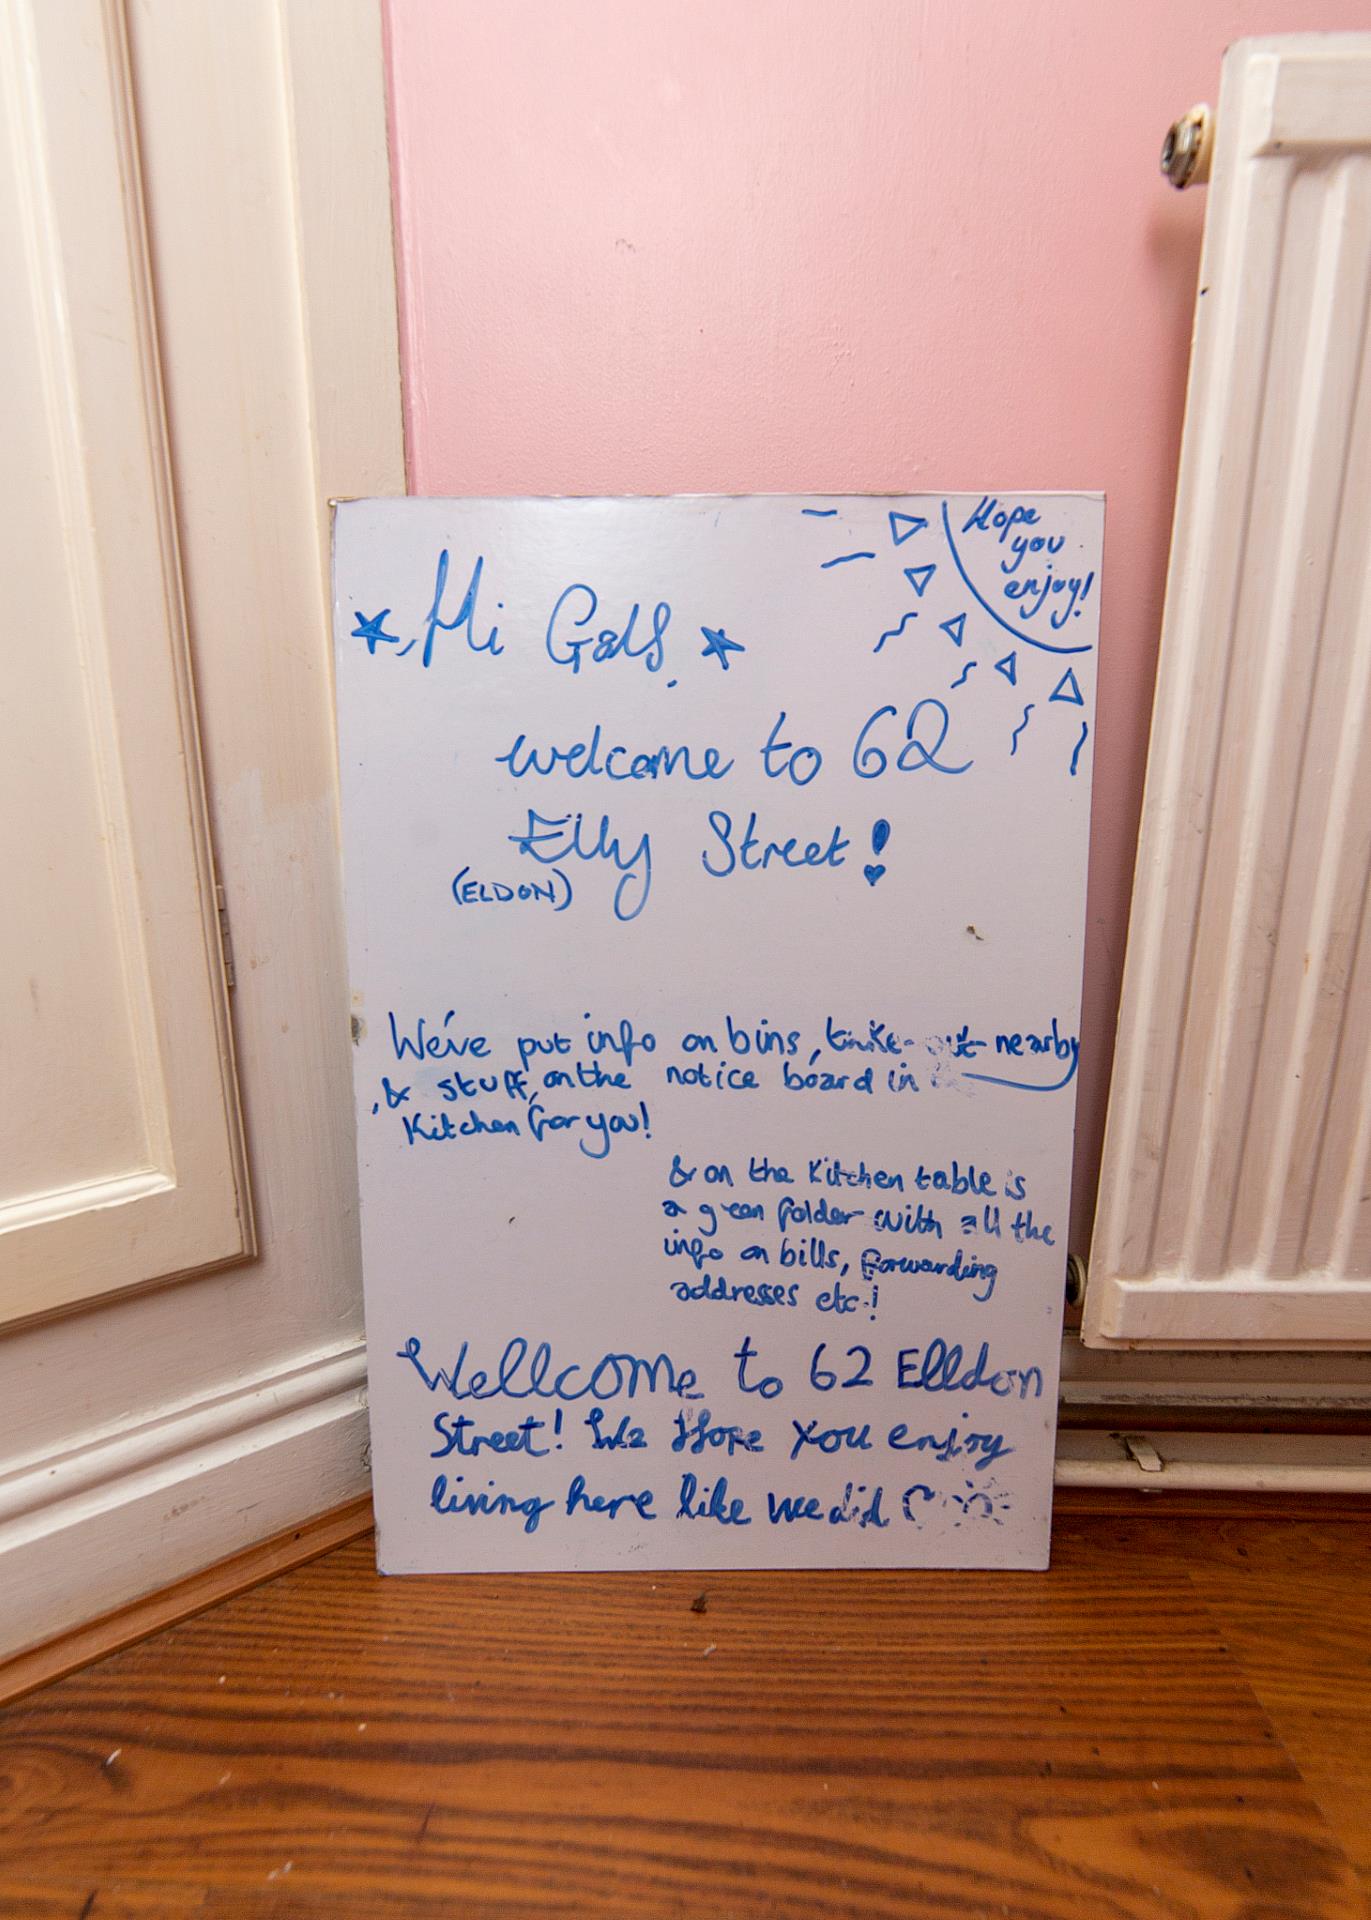 Hope
you
enjoy!
Hi Gals
welcome to 62
Elly Street!
(ELDON)
We've put info on bins, take-out nearby
& stuff, on the notice board in
Kitchen for you!
& on the Kitchen table is
a green folder with all the
info on bills, forwarding
addresses etc!
Wellcome to 62 Elldon
Street! We Hope you enjoy
living here like we did